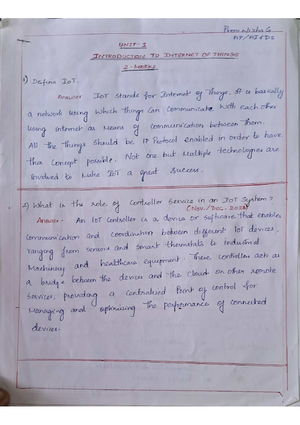 Premalatha G
AP/AI&DS
UNIT-1
INTRODUCTION TO INTERNET OF THINGS
2-Marks
1) Define IoT.
Answer:- IoT stands for Internet of Things. It is basically
a network using which things can communicate with each other
using internet as Means of communication between them.
All the things should be IP Protocol enabled in order to have
this concept possible. Not one but Multiple technologies are
involved to Make IoT a great success.
2) What is the role of Controller Service in an IoT System?
(Nov/Dec-2023)
Answer:- An IoT Controller is a device or software that enables
communication and coordination between different IoT devices,
ranging from sensors and smart thermostats to industrial
Machinery and healthcare equipment. These controllers act as
a bridge between the device and the cloud or other remote
services, providing a centralised Point of control for
Managing and optimising the performance of connected
devices.